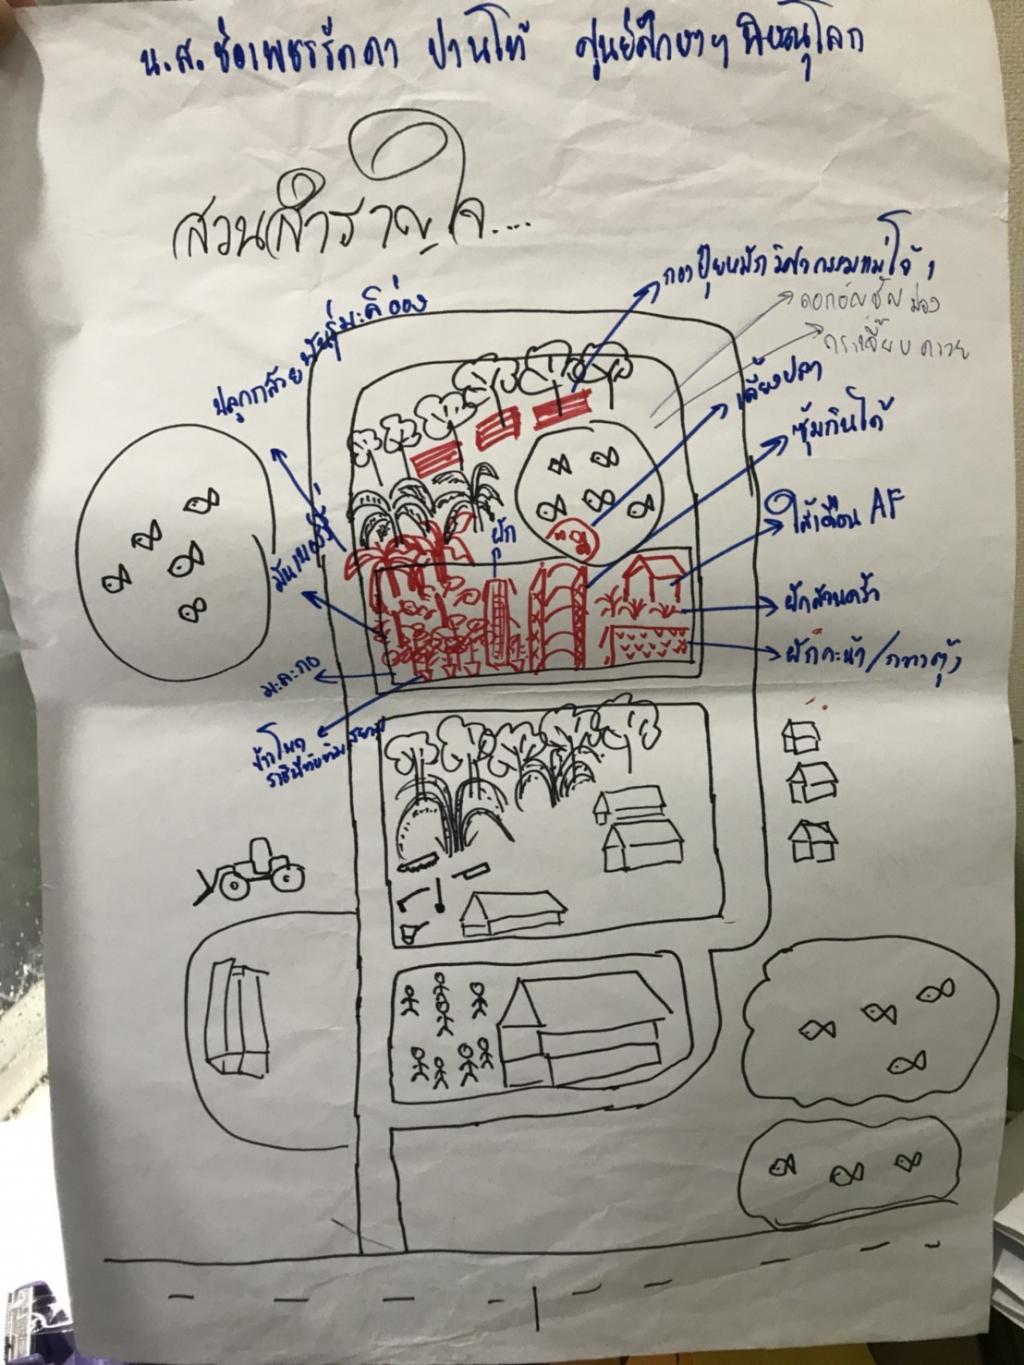 น.ส. ช่อเพชรรัดดา ปานโท้ ศูนย์ศึกษาฯ พิษณุโลก
สวนสำราญใจ....
กองปุ๋ยหมักวิศวกรรมแม่โจ้ 1
ดอกอัญชัน ม่วง
กระเจี๊ยบ
ปลูกกล้วยพันธุ์มะลิอ่อง
เลี้ยงปลา
ซุ้มกินได้
ไส้เดือน AF
ผัก
ผักสวนครัว
ผักคะน้า/กวางตุ้ง
มะละกอ
ข้าวโพด
ราชินีทับทิมสยาม